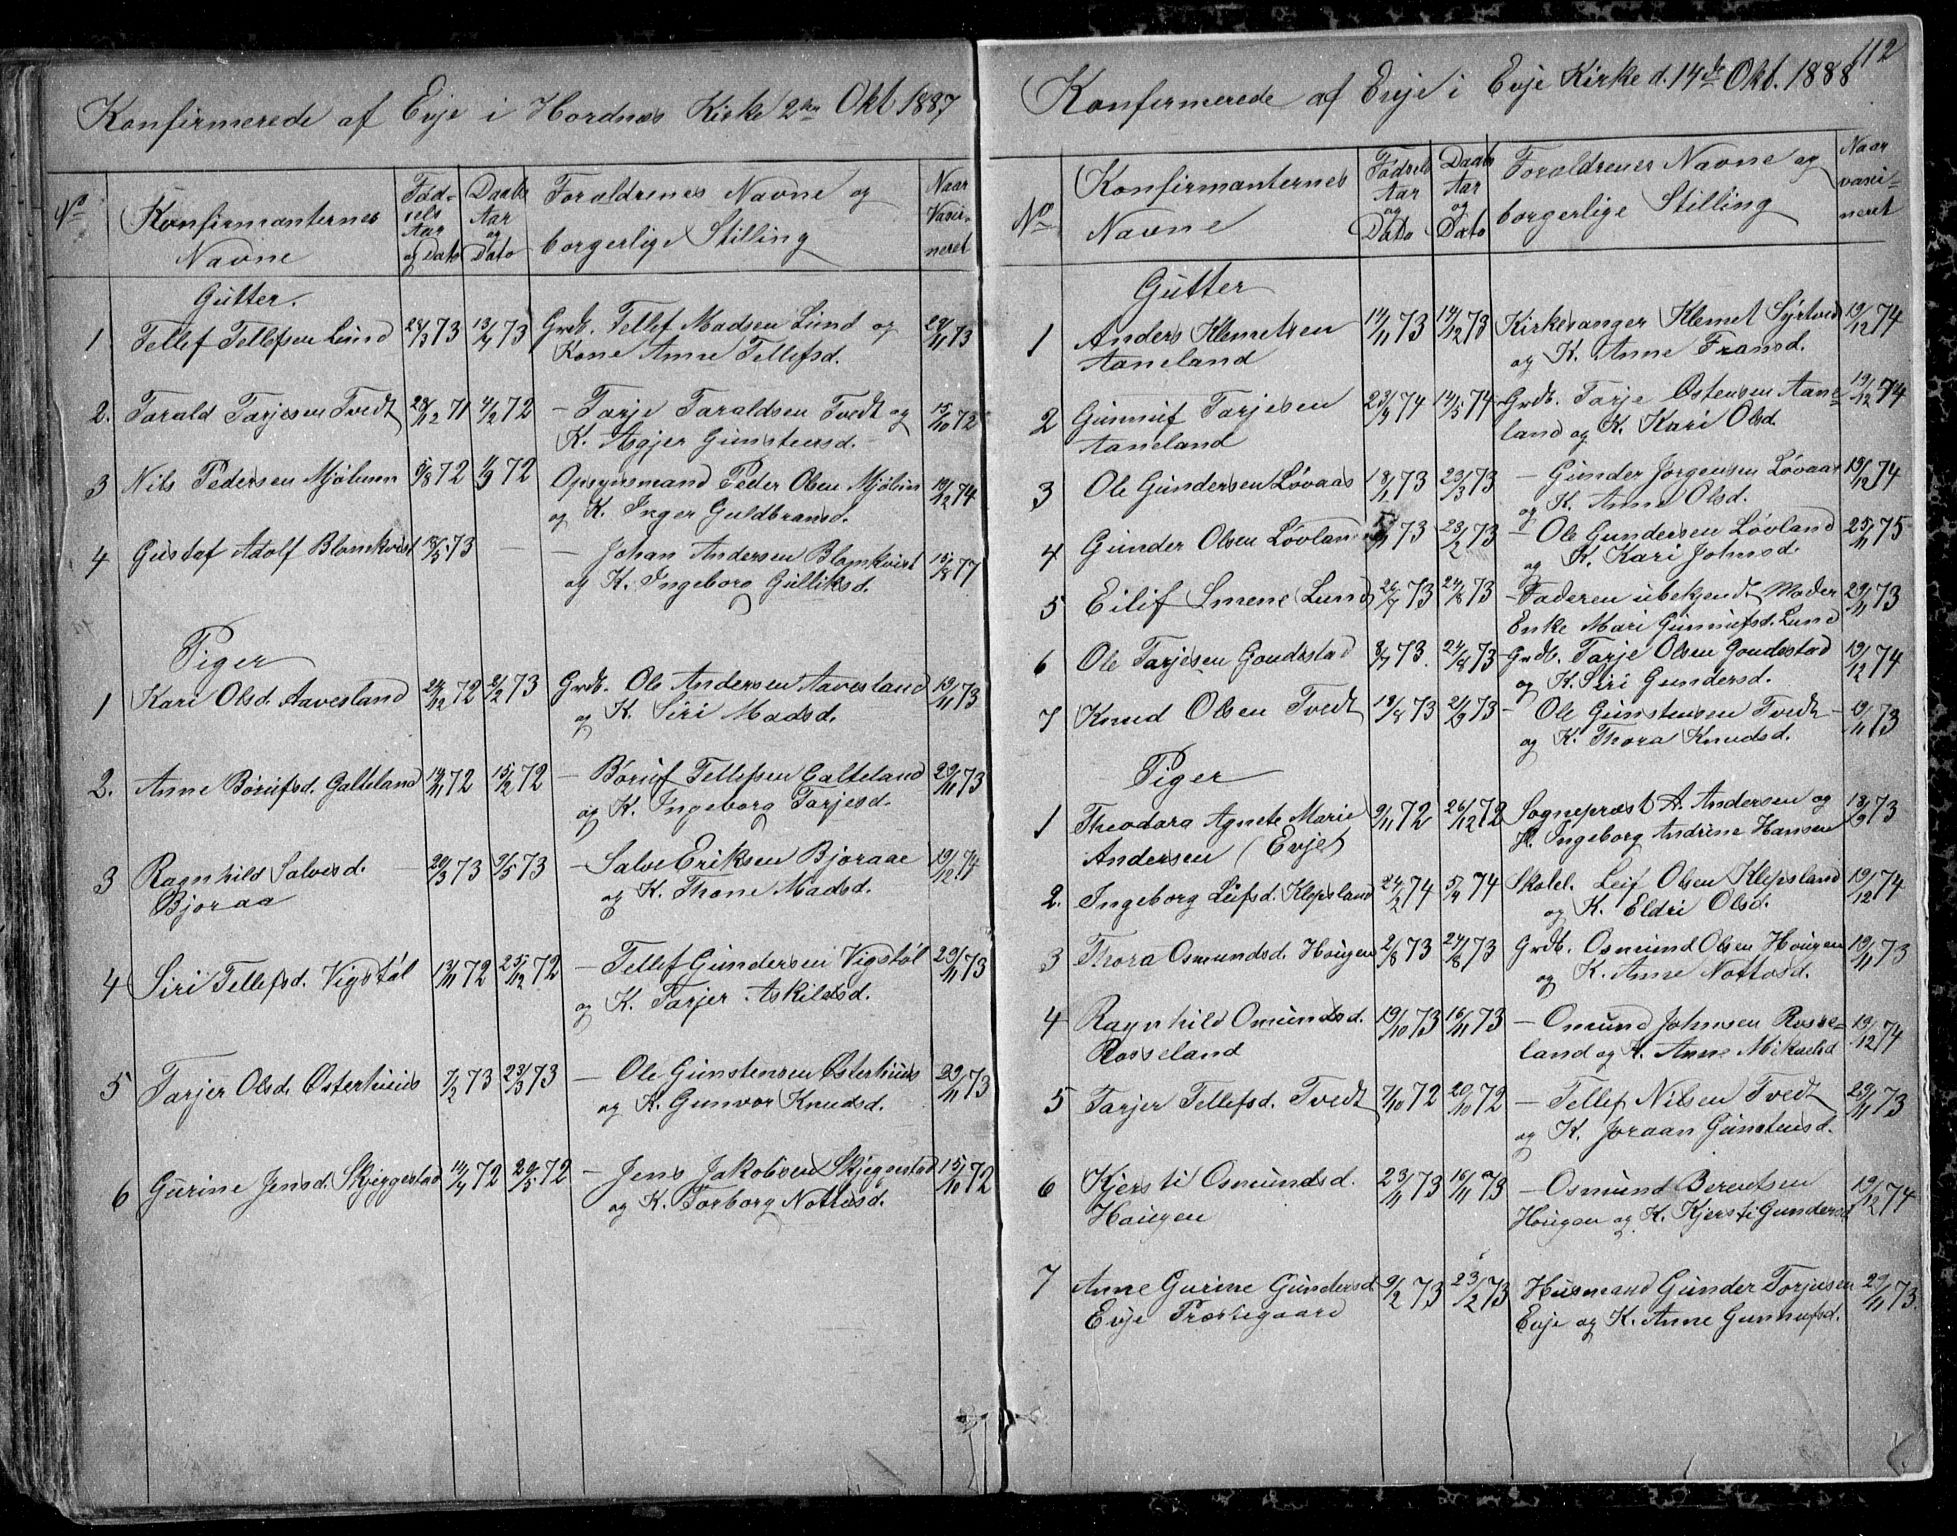 Konfirmerede af Evje i Hordnæs Kirke 2den Okt. 1887
No
Konfirmanternes
Navne
Fød-
sels
Aar
og Dato
Daabs
Aar
og
Dato
Forældrenes Navne og
borgerlige Stilling
Naar
Vacci-
neret
Gutter.
1 Tellef Tellefsen Lund 28/3 73 13/4 73 Grdb. Tellef Madsen Lund og 29/11 73
Kone Anne Tellefsd.
2. Tarald Tarjesen Tvedt 28/12 71 4/2 72 – Tarje Taraldsen Tvedt og 15/10 72
K. Agjer Gunstensd.
3 Nils Pedersen Mjølunn 5/8 72 72 Opsynsmand Peder Olsen Mjølun 19/12 74
og K. Inger Guldbransd.
4 Gustaf Adolf Blomkvist 18/5 73 – – Johan Andersen Blomkvist 15/8 77
og K. Ingeborg Gulliksd.
Piger
1 Kari Olsd. Aavesland 29/12 72 2/2 73 Grdb. Ole Andersen Aavesland 19/11 73
og K. Siri Madsd.
2. Anne Børufsd. Galteland 14/11 72 15/12 72 – Børuf Tellefsen Galteland 29/11 73
og K. Ingeborg Tarjesd.
3 Ragnhild Salvesd. 20/3 73 9/5 73 – Salve Eriksen Bjoraae 19/12 74
Bjoraa og K. Thone Madsd.
4 Siri Tellefsd. Vigstøl 14/11 72 25/12 72 – Tellef Gundersen Vigstøl 29/11 73
og K. Tarjer Askildsd.
5 Tarjer Olsd. Østerhuus 7/2 73 23/3 73 – Ole Gunstensen Østerhuus 29/11 73
og K. Gunvor Knudsd.
6 Gurine Jensd. Skjeggestad 14/4 72 20/5 72 – Jens Jakobsen Skjeggestad 15/10 72
og K. Torborg Nottosd.
112
Konfirmerede af Evje i Evje Kirke d. 14de Okt. 1888
No
Konfirmanternes
Navne
Fødsels
Aar
og
Dato
Daabs
Aar
og
Dato
Forældrenes Navne og
borgerlige Stilling
Naar
vacci-
neret
Gutter
1 Anders Klemetsen 14/11 73 14/12 73 Kirkesanger Klemet Syrtveit 19/12 74
Aaneland og K. Anne Fransd.
2 Gunnuf Tarjesen 23/3 74 14/5 74 Grdb. Tarje Ostensen Aane- 19/12 74
Aaneland land og K. Kari Olsd.
3 Ole Gundersen Løvaas 18/1 73 23/3 73 – Gunder Jørgensen Løvaas 19/12 74
og K. Anne Olsd.
4 Gunder Olsen Løvland 73 23/2 73 – Ole Gundersen Løvland 25/11 75
og K. Kari Johnsd.
5 Eilif Smene Lund 26/7 73 24/8 73 – Faderen ubekjendt Moder 29/11 73
Enke Mari Gunnufsd. Lund
6 Ole Tarjesen Goudestad 8/7 73. 24/8 73 Grdb. Tarje Olsen Goudestad 19/12 74
og K. Siri Gundersd.
7 Knud Olsen Tvedt 19/8 73 21/9 73 – Ole Gunstensen Tvedt – 19/11 73
og K. Thora Knudsd.
Piger
1 Theodora Agnete Marie 9/11 72 26/12 72 Sognepræst A. Andersen og 18/9 73
Andersen (Evje) K. Ingeborg Andrine Hansen
2. Ingeborg Leifsd. Klepsland 24/2 74 5/4 74 Skolel. Leif Olsen Klepsland 19/12 74
og K. Eldri Olsd.
3 Thora Osmundsd. Hougen 2/8 73 24/8 73 Grdb. Osmund Olsen Hougen 19/11 73
og K. Anne Nottosd.
4 Ragnhild Omundsd. 19/10 73 16/11 73 – Omund Johnsen Rosse- 19/12 74
Rosseland land og K. Anne Mikaelsd
5 Tarjer Tellefsd. Tvedt 7/10 72 20/10 72 – Tellef Nilsen Tvedt 29/11 73
og K. Joraan Gunstensd.
6 Kjersti Osmundsd. 23/11 73 16/11 73 – Osmund Berentsen 19/12 74
Hougen Hougen og K. Kjersti Gundersd
7 Anne Gurine Gundersd 9/2 73 23/2 73 Husmand Gunder Torjusen 29/11 73.
Evje Præstegaard Evje og K. Anne Gunnufsd.